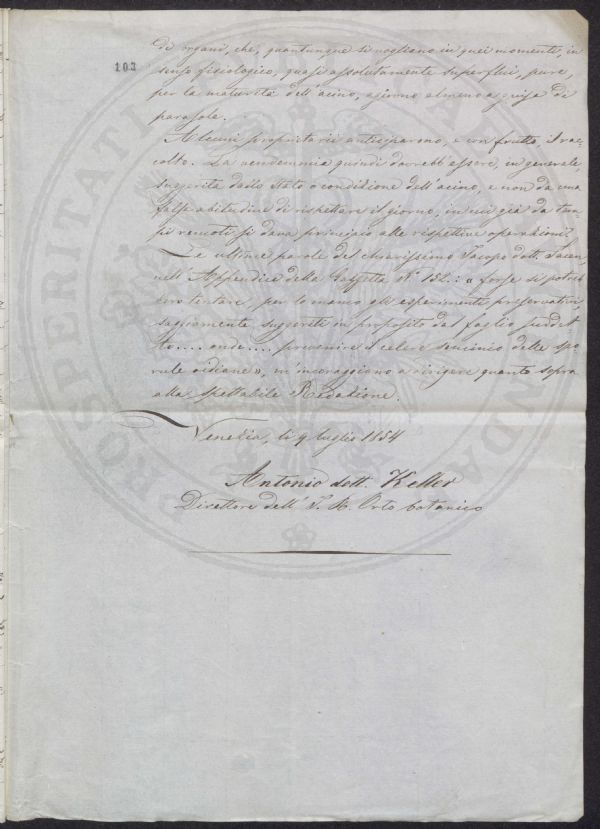 di organi, che, quantunque si vogliano in quei momenti, in
103
senso fisiologico, quasi assolutamente superflui, pure,
per la maturità dell'acino, agiranno almeno a guisa di
parasole.
Alcuni proprietarii anticiparono, e con frutto, il rac-
colto. La vendemmia quindi dovrebb'essere, in generale,
suggerita dallo stato o condizione dell'acino, e non da una
falsa abitudine di rispettare il giorno, in cui già da tem-
pi remoti si dava principio alle rispettive operazioni.
Le ultime parole del chiarissimo Jacopo dott.
nell'Appendice della Gazzetta N.° 152.: « forse si potreb-
bero tentare, per lo manco gli esperimenti preservativi,
saggiamente suggeriti in proposito dal foglio suddet-
to.... onde.... prevenire il celere delle spo-
rule oidiane », m'incoraggiano a dirigere quanto sopra
alla spettabile Redazione.
Venezia, li 9 luglio 1854
Antonio dott. Keller
Direttore dell'I. R. Orto botanico